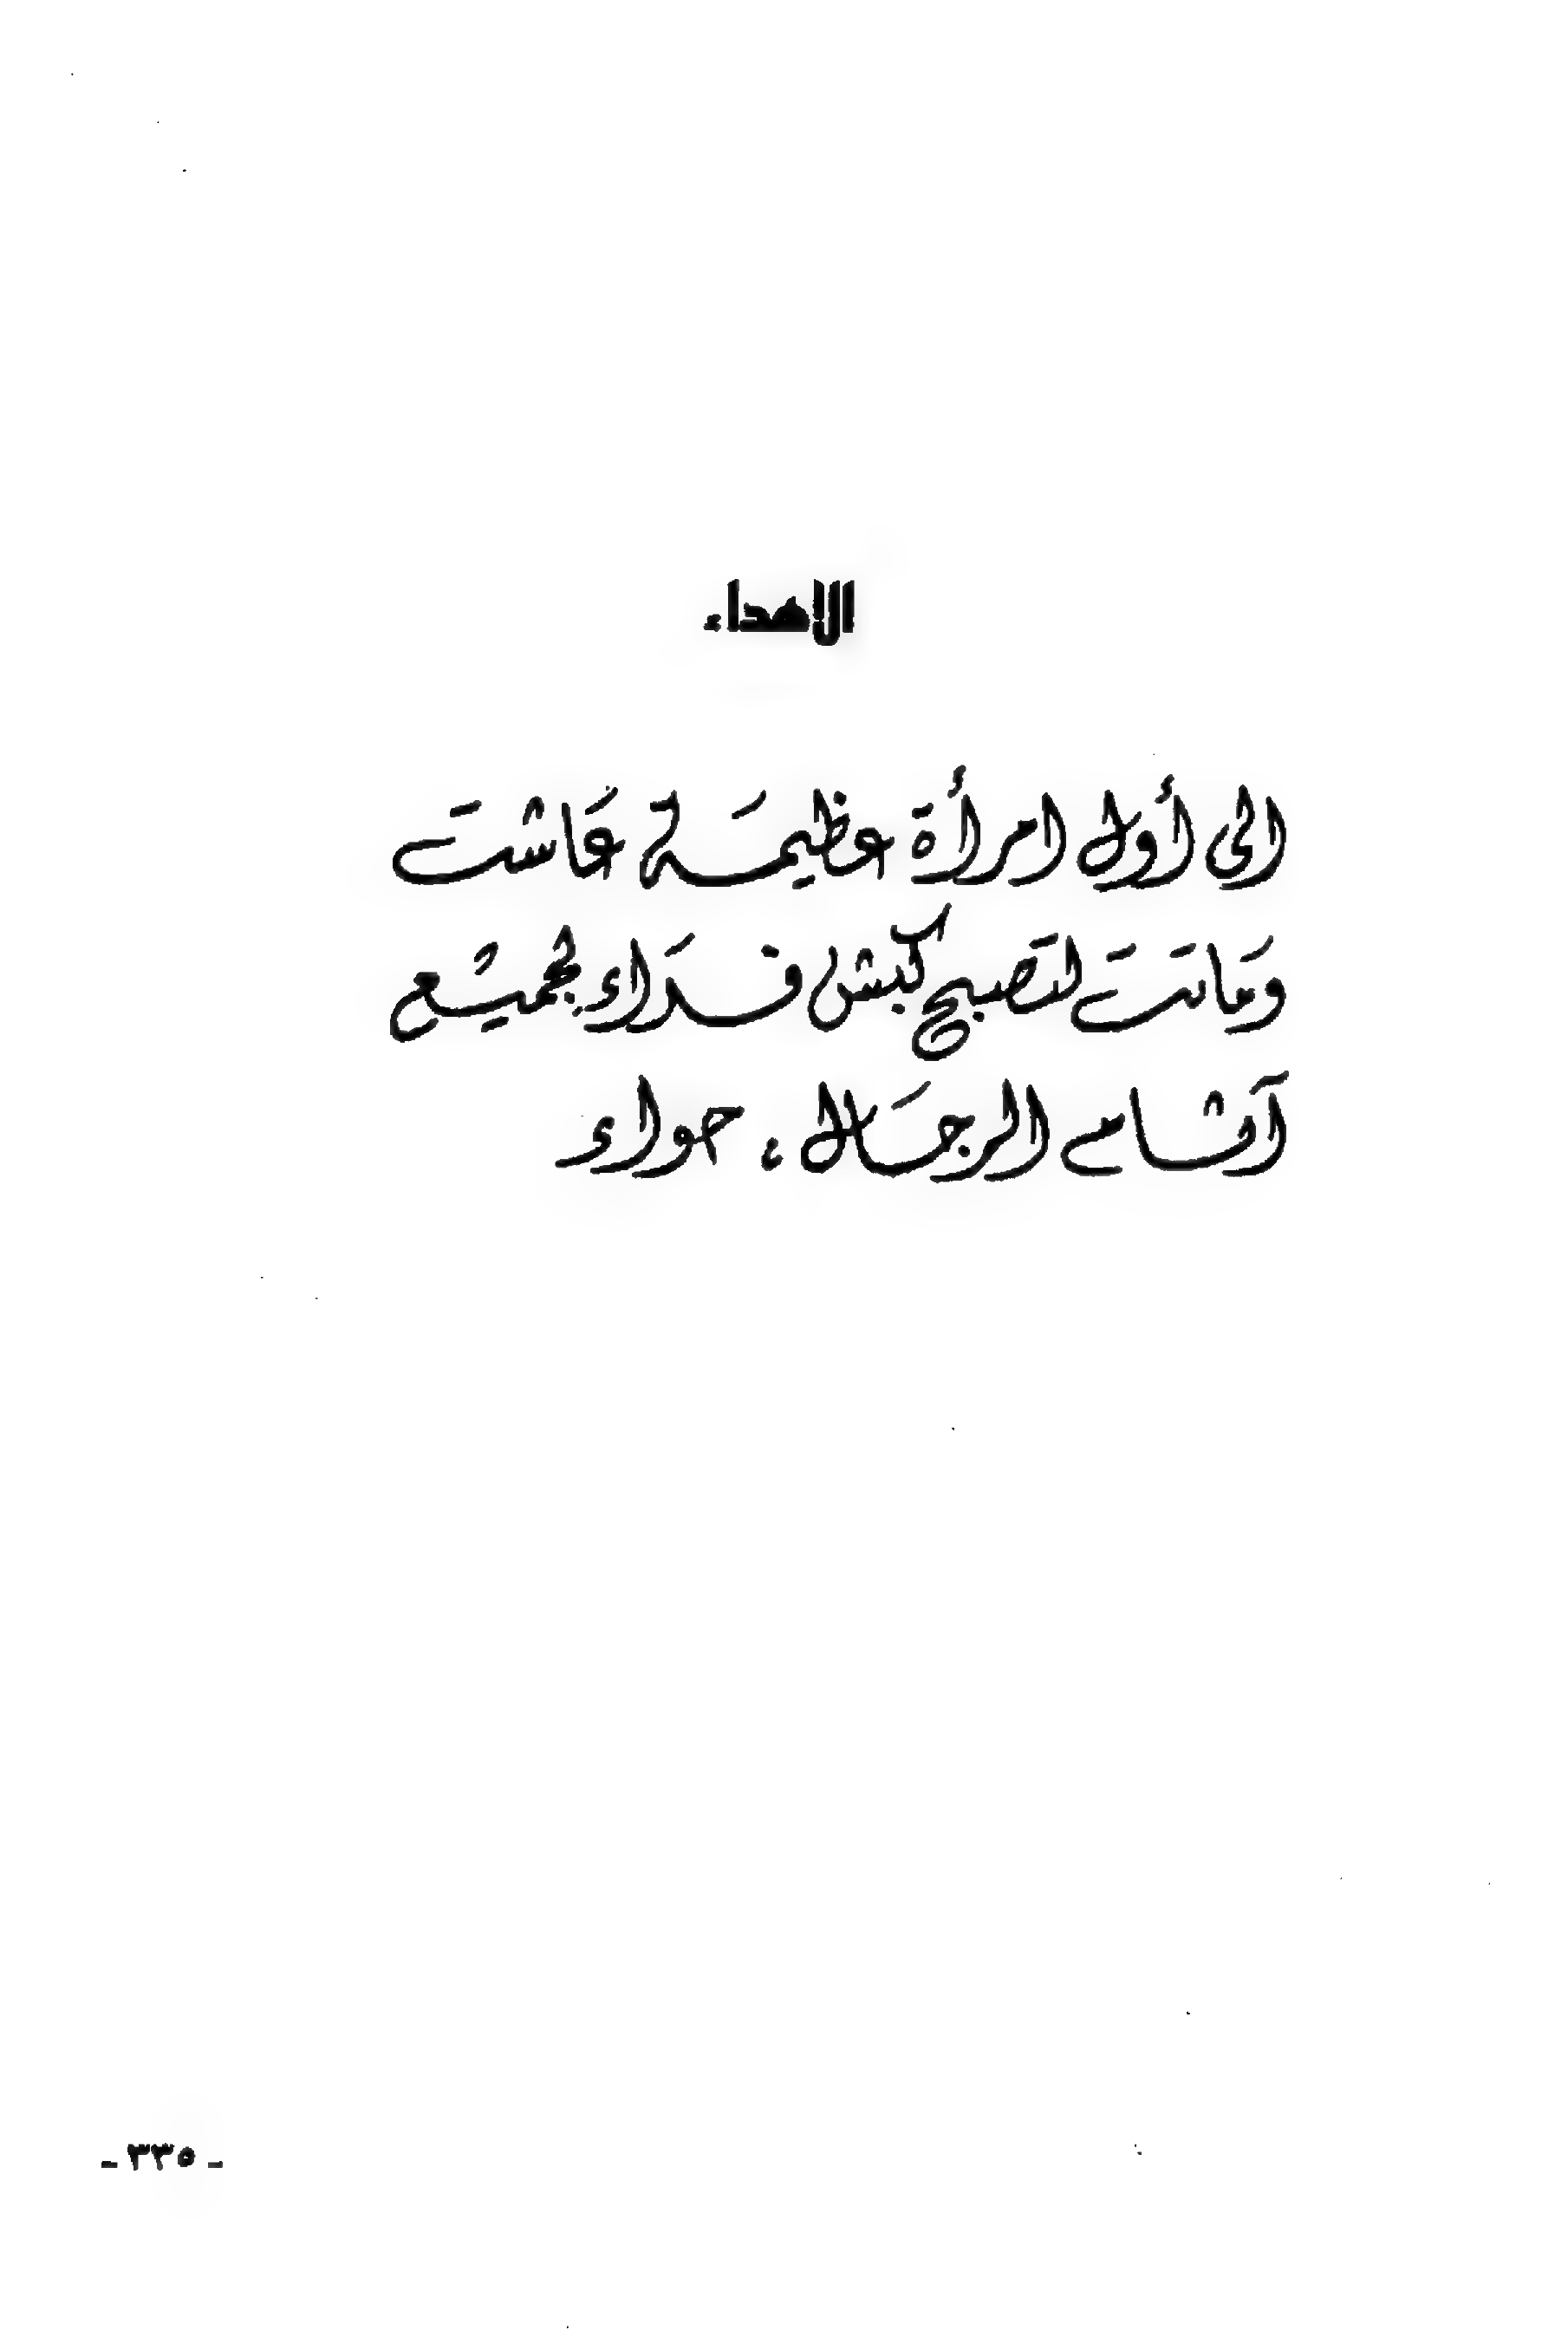 الاهداء
الى أول امرأة عظيمَة عَاشت
وَمَاتت لتصبح كبش فدَاء لجميع
آثام الرجَال ، حواء
- ٣٣٥ -